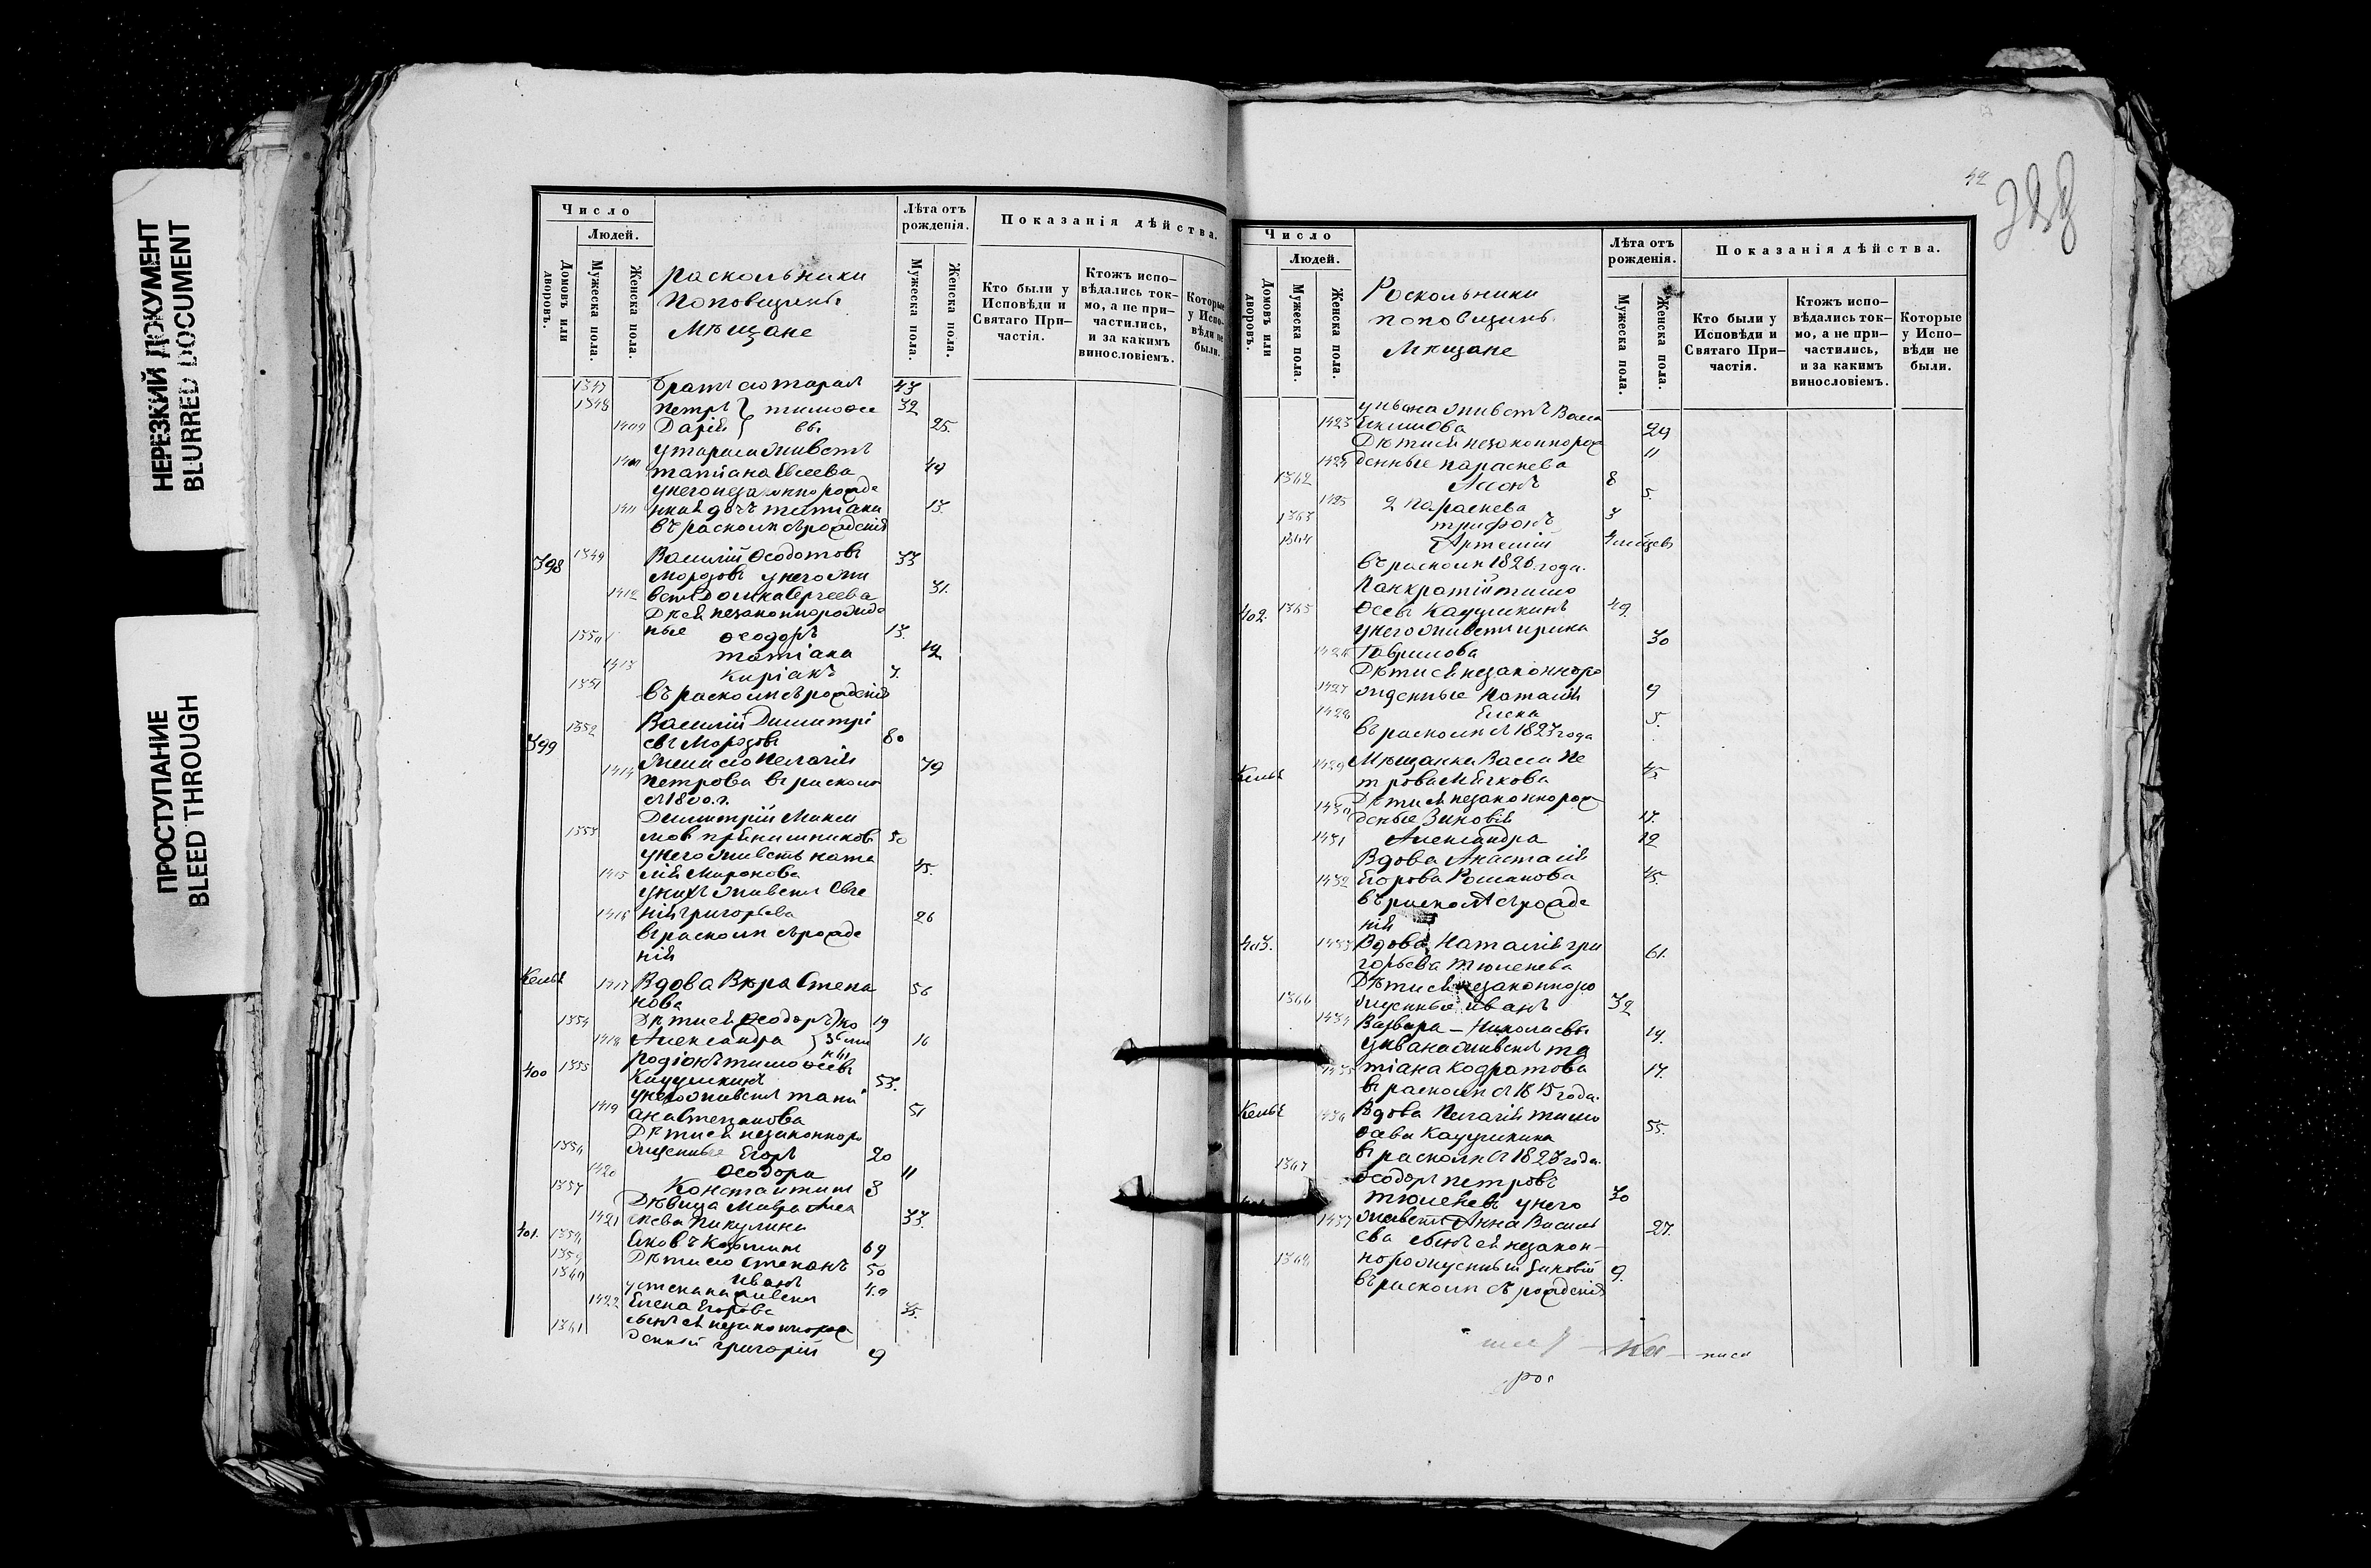 НЕРЕЗКИЙ ДОКУМЕНТ
BLURRED DOCUMENT
ПРОСТУПАНИЕ
BLEED THROUGH
Число
Людей.
Домовъ или дворовъ.
Мужеска пола.
Женска пола.
раскольники
поповщины
Мѣщане
Лѣта отъ рожденія.
Мужеска пола.
Женска пола.
Показанія дѣйства.
Кто были у Исповѣди и Святаго При-частія.
Ктожъ испо-вѣдались ток-мо, а не при-частились, и за какимъ винословіемъ.
Которые у Испо-вѣди не были.
1347 братъ его тарасъ 43
1348 петръ } тимоѳе 32
1409 Дарія } вы 25.
у тараса живетъ
татіана Евсеева 49
у него незаконнорожде
1411 ная дочь татіана 13.
въ расколѣ съ рожденія
398 1349 Василій Ѳеодотовъ 33
Морозовъ у него жи
1412 ветъ Сергеева 31.
незаконнорожде
ные ѳеодоръ 13.
1413 татіана 12
1351 Киріакъ 7.
въ расколѣ съ рожденія
399 1352 Василій Димитрі
евъ Морозовъ 80
1414 Жена его Пелагія 79
петрова въ расколѣ
съ 1800. г.
Димитрій Макси
1353 мовъ 50
у него живетъ ната
1415 лія Миронова 45.
у нихъ живетъ Евге
1416 нія григорьева 26
въ расколѣ съ рожде
нія
Келья 1417 Вдова Вѣра Степа 56
нова
1354 Дѣти ея Ѳеодоръ 19
1418 Александра 16
400 1355 родіонъ тимоѳеевъ
53.
у него живетъ тати
1419 ана Степанова 51
Дѣти ея незаконноро
жденные Егоръ 20
1420 Ѳеодора 11
1357 Константинъ 8
Дѣвица Мавра Алек
1421 сеева Пикулина 33.
401. Яковъ 69
1359 Дѣти его степанъ 50
1360 иванъ 40
у степана живетъ
1422 Елена Егорова 35.
1361 сынъ ея незаконнорож
денный григорій 9
42
Число
Людей.
Домовъ или дворовъ.
Мужеска пола.
Женска пола.
Роскольники
поповщины
Мѣщане
Лѣта отъ рожденія.
Мужеска пола.
Женска пола.
Показанія дѣйства.
Кто были у Исповѣди и Святаго При-частія.
Ктожъ испо-вѣдались ток-мо, а не при-частились, и за какимъ винословіемъ.
Которые у Испо-вѣди не были.
у ивана живетъ Васса
1423 Екимова 29
Дѣти ея незаконнорож
1424 денные параскева 11
1362 8
1425 2 параскева 5.
1363 трифонъ 3
1364 Артемій
въ расколѣ 1826. года.
Панкратій тимо
402. 1365 ѳеевъ 49.
у него живетъ ирина 30
Гаврилова
Дѣти ея незаконноро
1427 жденные Наталія 9
1428 Елена 5.
въ расколѣ съ 1823 года
Келья 1429 Мѣщанка Васса Пе
трова 45
1430 Дѣти ея незаконнорож
деные Зиновія 17.
1431 Александра 12
Вдова Анастасія
1432 Егорова Романова 45.
въ расколѣ съ рожде
нія
403. 1433 Вдова Наталія гри
горьева тюленева 61.
Дѣти ея незаконноро
1366 жденные иванъ 32
1434 Варвара – Николаевы 19.
у ивана живетъ та
1435 тіана Кодратова 17.
въ расколѣ съ 1815 года.
Келья 1436 Вдова Пелагія тимо
55.
въ расколѣ съ 1823 года.
1367 Ѳеодоръ петровъ
тюленевъ у него 30
1437 живетъ Анна Василь
ева сынъ ея незакон- 27.
норожденный 9.
въ расколѣ съ рожденія